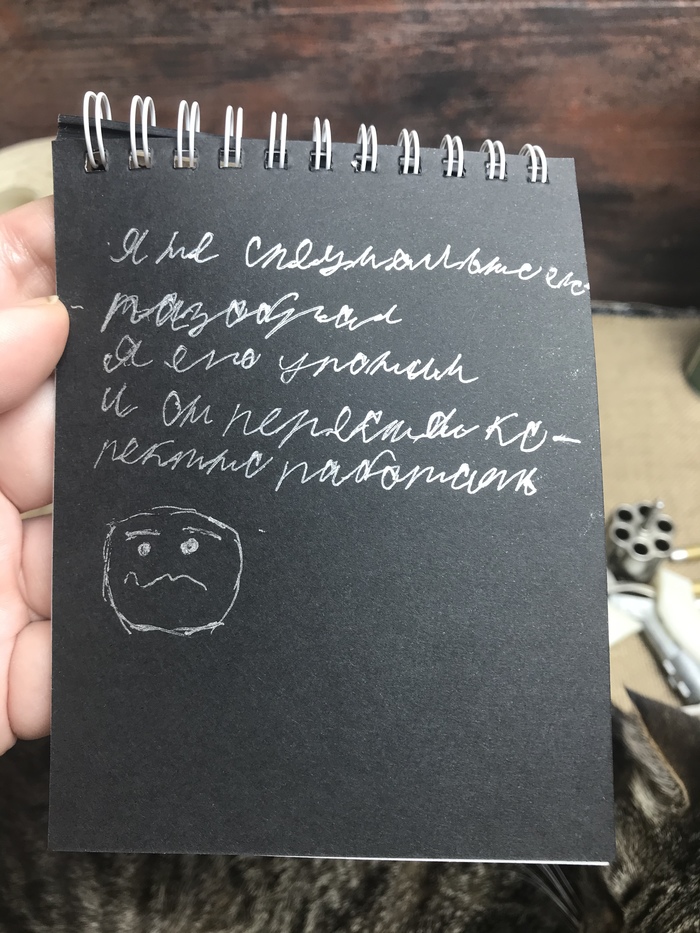 Я не специально его
разобрал
Я его уронил
и он перестал ко-
ректно работать